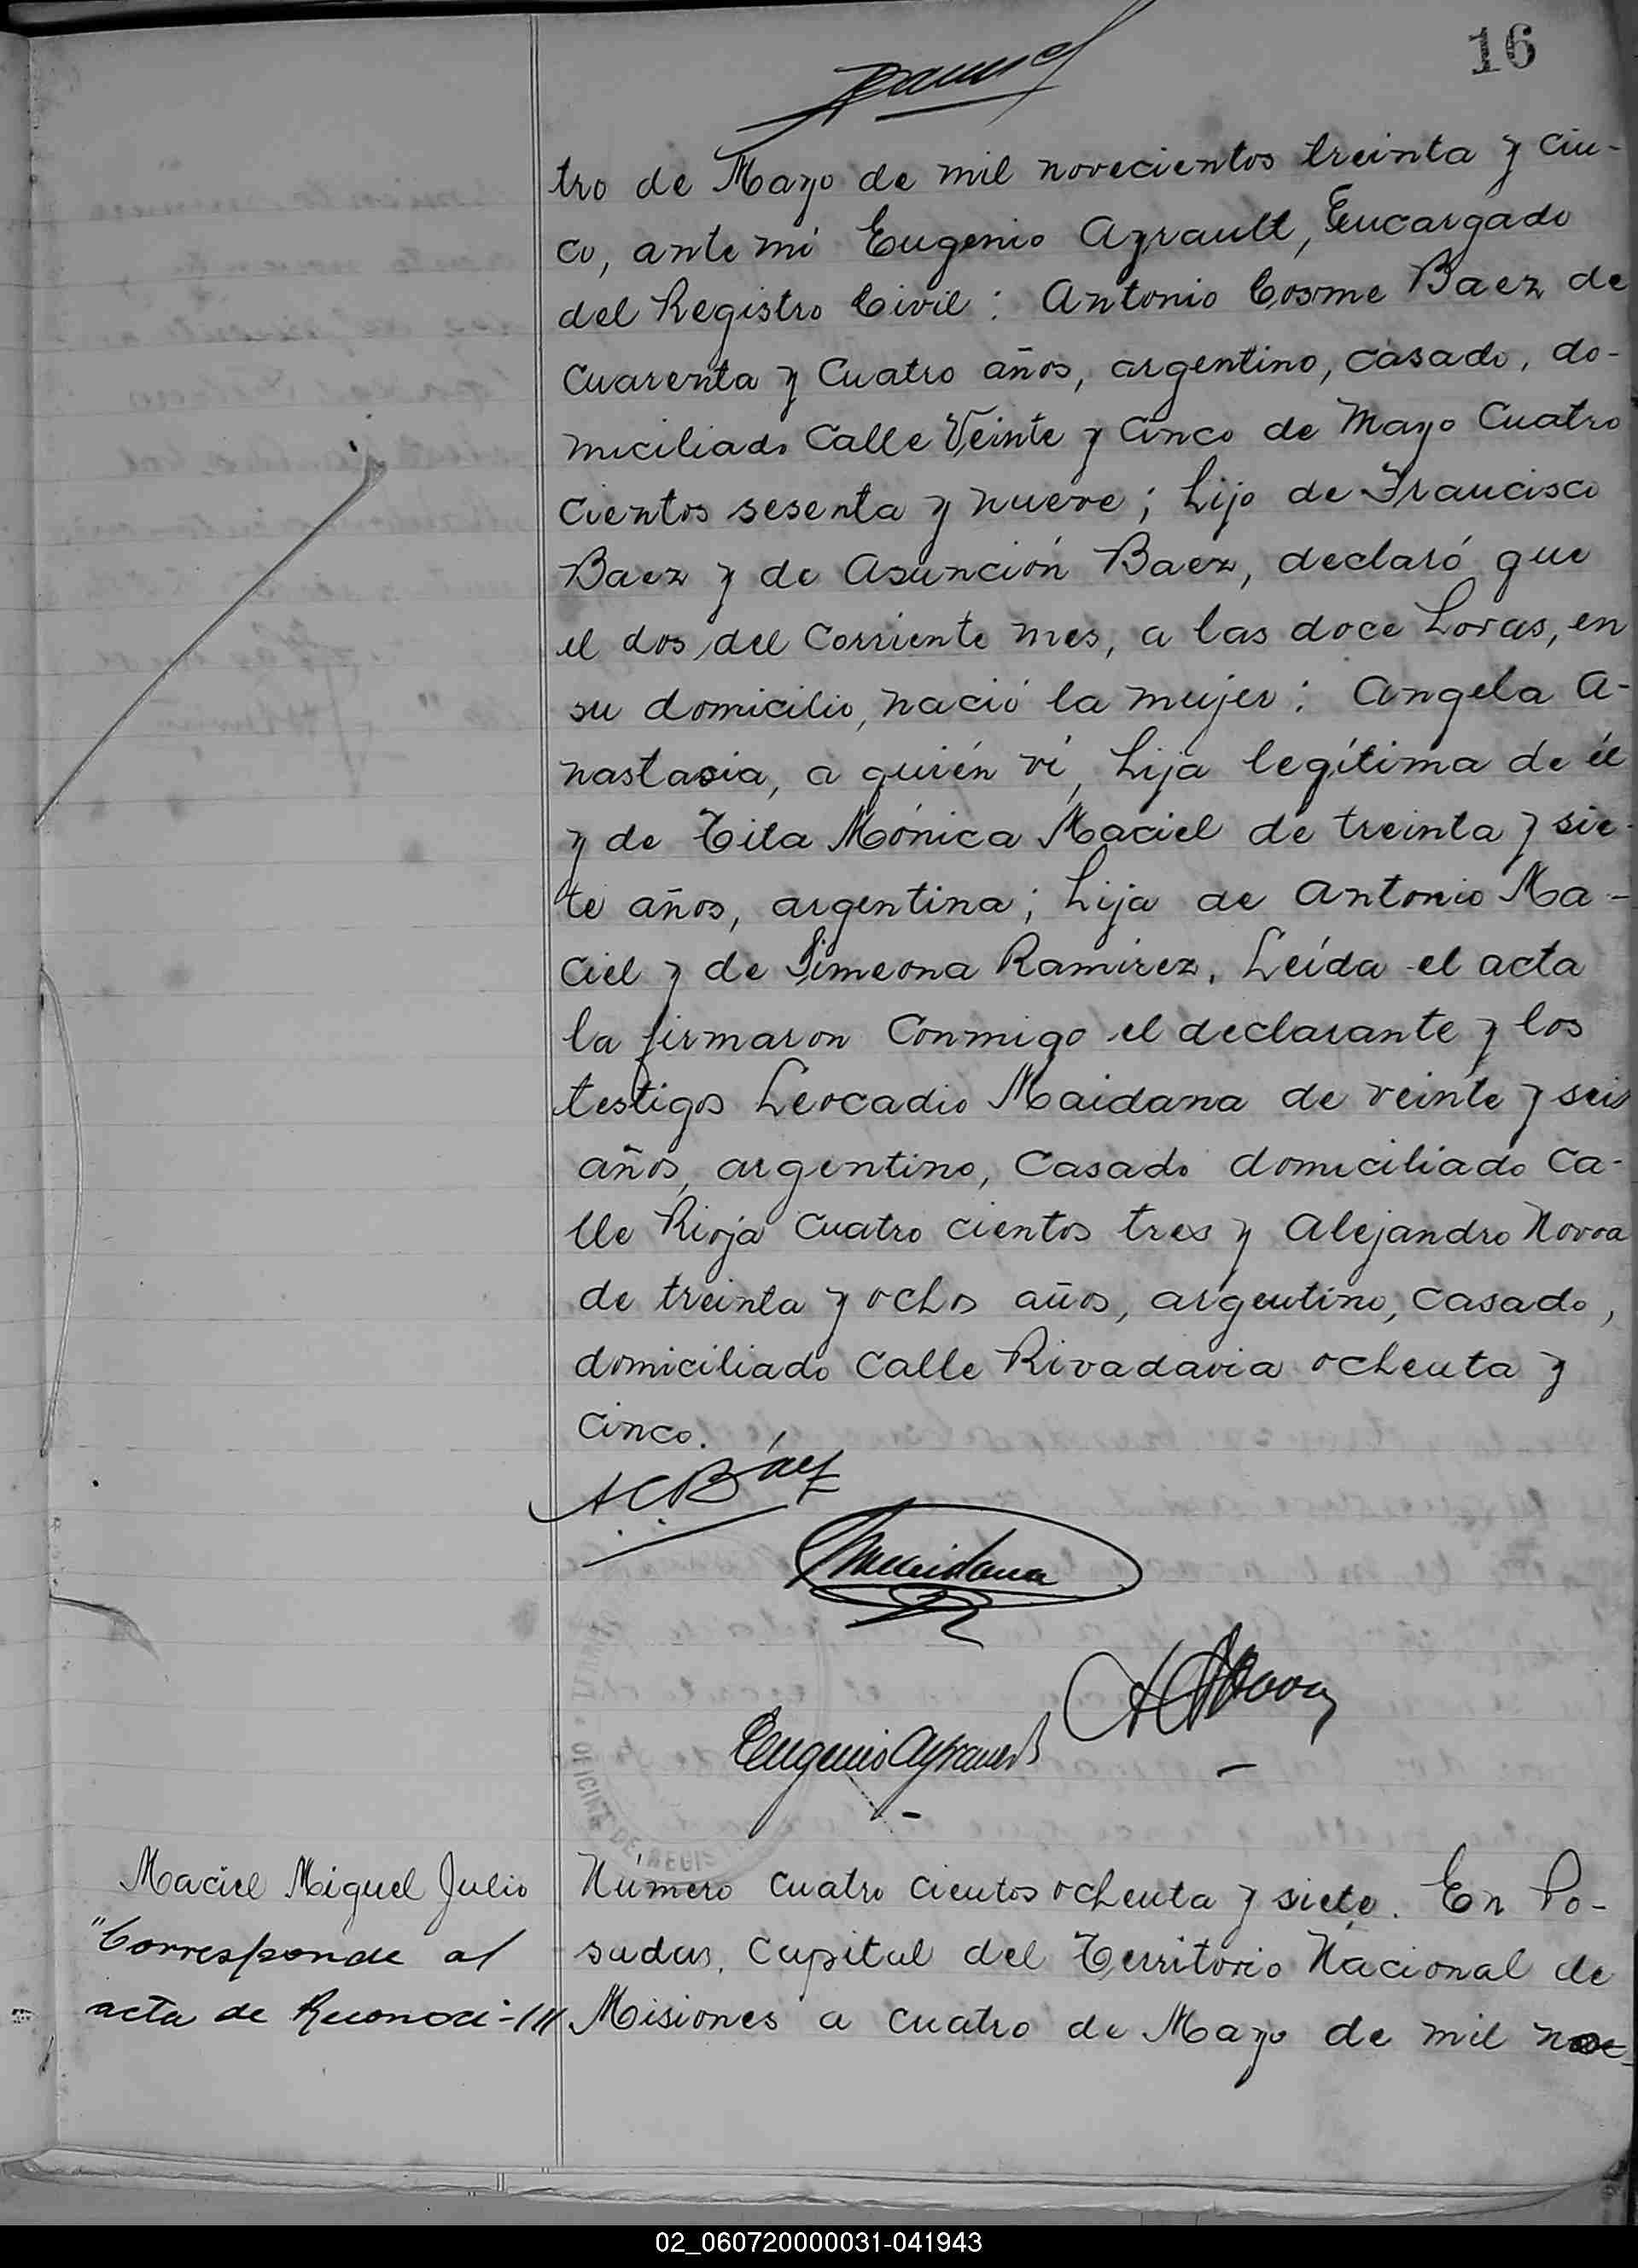 16
tro de Mayo de mil novecientos treinta y cin-
co, ante mi Eugenio Ayrault, Encargado
del Registro Civil: Antonio Cosme Baez de
cuarenta y cuatro años, argentino, casado, do-
miciliado Calle Veinte y cinco de Mayo Cuatro
cientos sesenta y nueve; hijo de Francisco
Baez y de Asunción Baez, declaró que
el dos del corriente mes, a las doce horas, en
su domicilio, nació la mujer: Angela A-
nastasia, a quién ví, hija legítima de él
y de Tita Mónica Maciel de treinta y sie-
te años, argentina; hija de Antonio Ma-
ciel y de Simeona Ramirez. Leída el acta
la firmaron conmigo el declarante y los
testigos Leocadio Maidana de veinte y seis
años, argentino, casado domiciliado ca-
lle Rioja cuatro cientos tres y Alejandro Novoa
de treinta y ocho años, argentino, casado,
domiciliado calle Rivadavia ochenta y
cinco.
A C Báez
Maidana
A Novoa
Eugenio Ayrault
OFICINA DE REGIS
Maciel Miguel Julio
"Corresponde al
acta de Reconoci-///
Número cuatro cientos ochenta y siete. En Po-
sadas, Capital del Territorio Nacional de
Misiones a cuatro de Mayo de mil
02_060720000031-041943